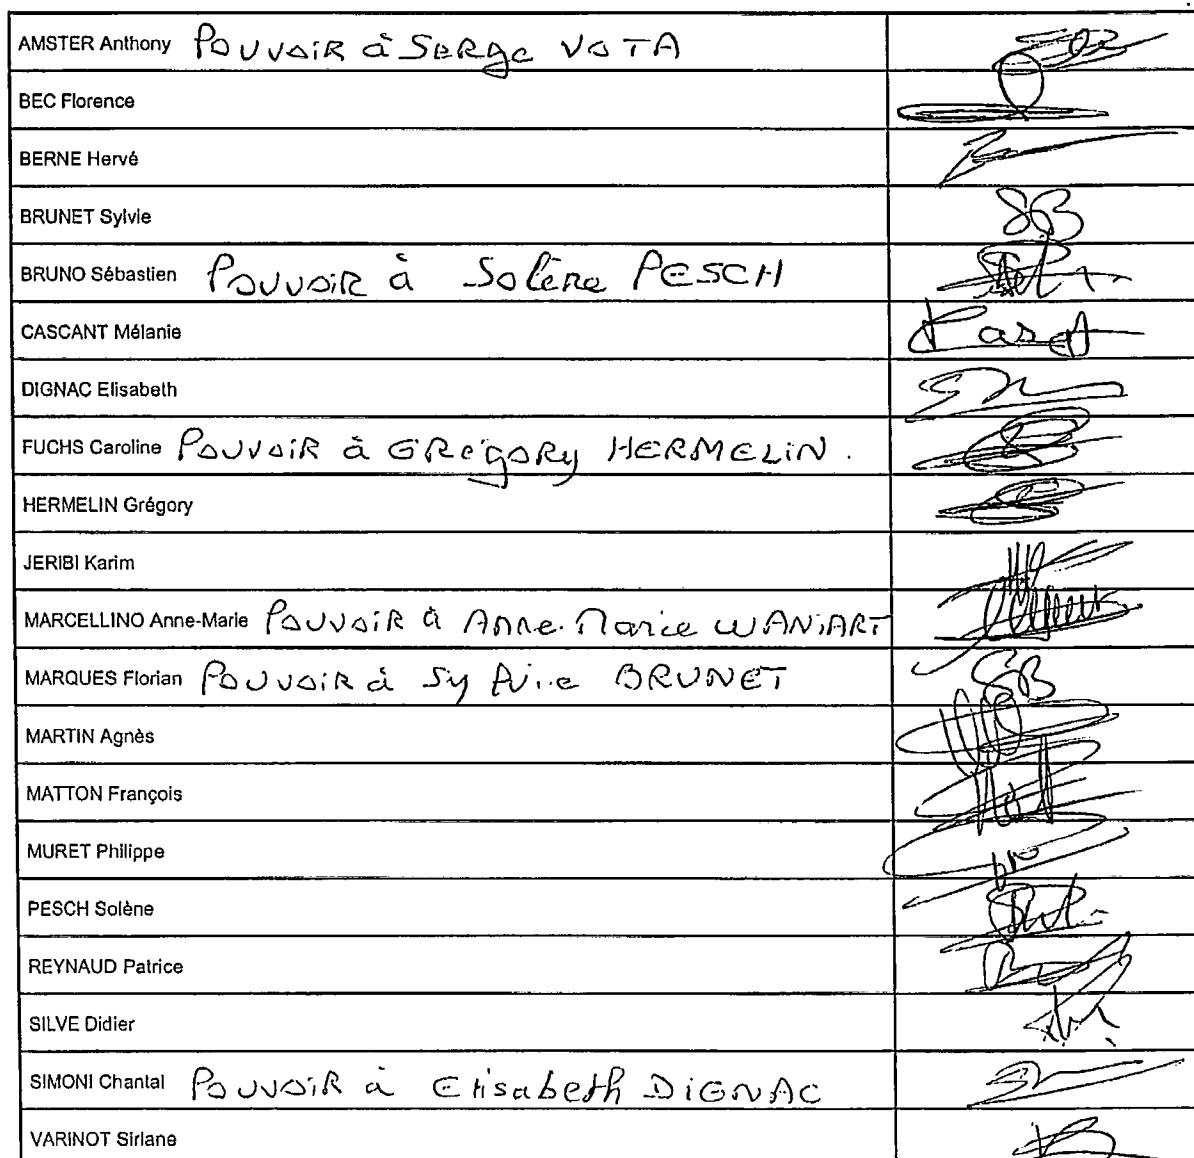 AMSTER Anthony Pouvoir à Serge VOTA
BEC Florence
BERNE Hervé
BRUNET Sylvie
BRUNO Sébastien Pouvoir à Solène PESCH
CASCANT Mélanie
DIGNAC Elisabeth
FUCHS Caroline Pouvoir à Grégory HERMELIN.
HERMELIN Grégory
JERIBI Karim
MARCELLINO Anne-Marie Pouvoir à Anne-Marie WANIART
MARQUES Florian Pouvoir à Sylvie BRUNET
MARTIN Agnès
MATTON François
MURET Philippe
PESCH Solène
REYNAUD Patrice
SILVE Didier
SIMONI Chantal Pouvoir à Elisabeth DIGNAC
VARINOT Sirlane